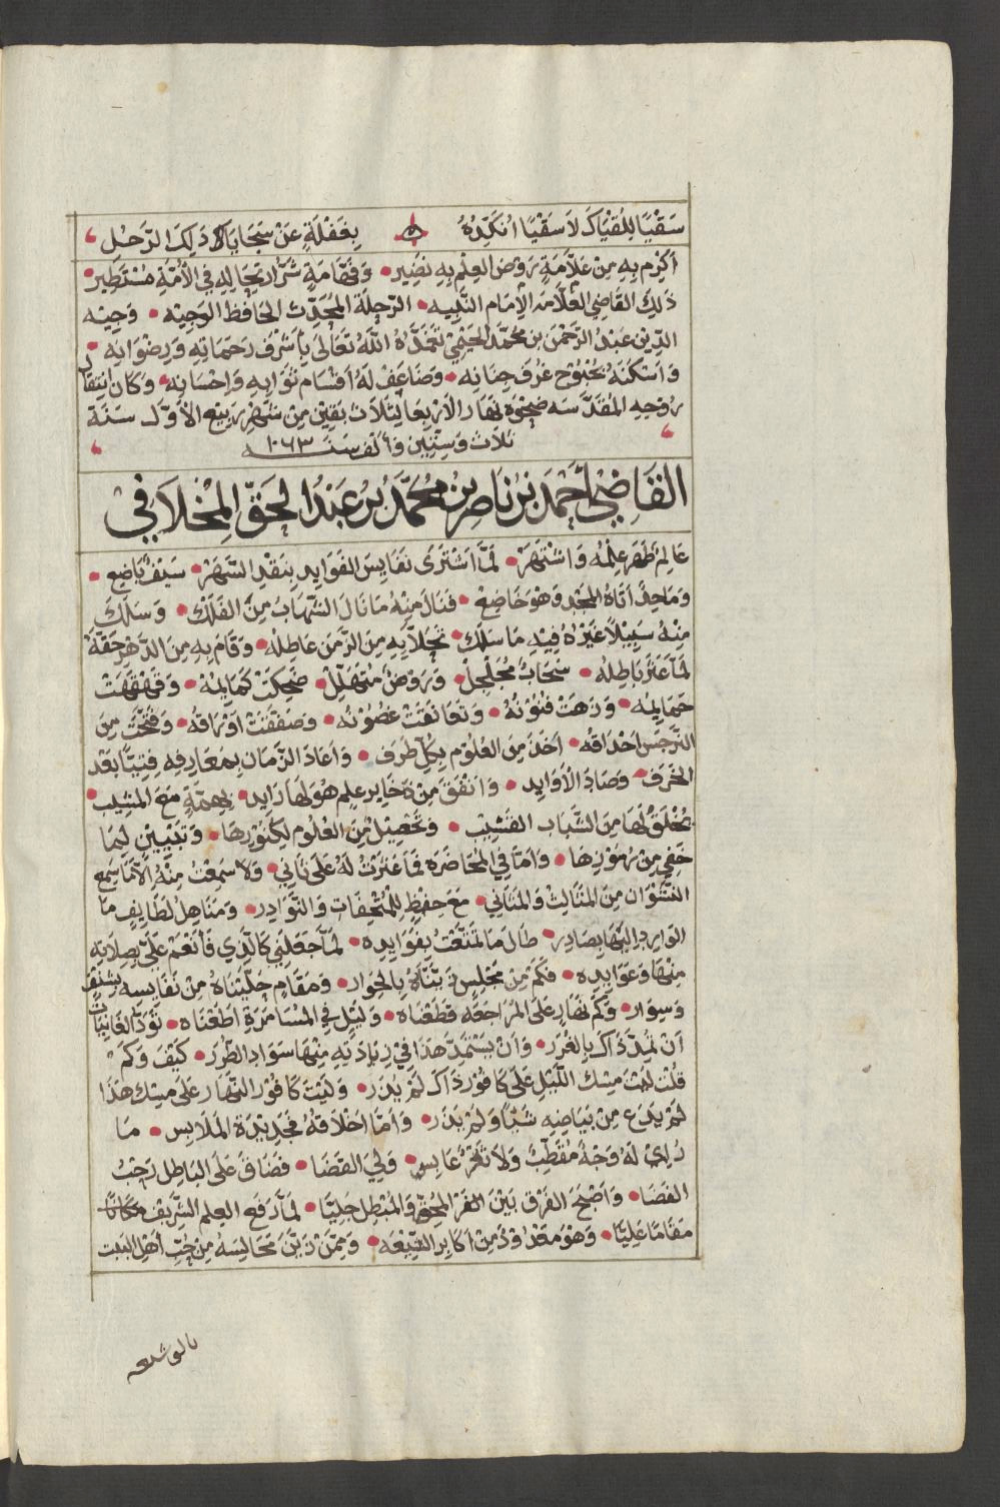 سَقْيًا لِلُقْيَاكَ لَا سَقْيًا انكدهُ بِغَفْلَةٍ عَنْ سَجَايَا ذَلِكَ الرَّجُلِ
اكرم بِهِ مِن عَلَّامَةٍ رَوْض العِلْم بِهِ نَضِير وَفَهَّامَةٍ شَرَار لِهِ فِي الأُمَّةِ مُسْتَطِير
ذَلِكَ القَاضِي العَلَّامَه الإِمَام النَّبِيه الرِّحْلَة المُحَدِّث الحَافِظ الوَجِيْه وَجِيْه
الدِّين عَبْدُ الرَّحْمَن بن مُحَمَّد الحَيْمِيْ تَغَمَّدَهُ اللهُ تَعَالَى بِأَشْرَف رَحَمَاتِهِ وَرِضْوَانِه
وَأَسْكَنَهُ بُحْبُوْحَ غُرَف جِنَانِه وَضَاعَفَ لَهُ أَقْسَام ثَوَابِهِ وَاِحْسَانِه وَكَان انتِقَال
رُوْحِهِ المُقَدَّسَه ضَحْوَة نَهَار الأَرْبِعَا لِثَلَاث بَقِيْن مِن شَهْر رَبِيْع الأَوَّل سَنَة
ثَلَاث وَسِتِّين وَأَلف سَنَة ١٠٦٣
القَاضِيْ أَحْمَدُ بْنُ نَاصِر بْن مُحَمَّد بْن عَبْدُ الحَقّ المِخْلَافِيْ
عَالِمٌ ظَهَرَ عِلْمُه وَاشْتَهَرْ لَمَّا اشْتَرَى نَفَايِسَ الفَوَايِد بِنَقْدِ السَّهَرْ سَيْفٌ بَاضِع
وَمَاجِدٌ أَتَاهُ المَجْد وَهُوَ خَاضِعْ فَنَالَ مِنْهُ مَا نَالَ الشِّهَابُ مِنَ الفَلَكْ وَسَلَكَ
مِنْهُ سَبِيْلًا غَيْرُهُ فِيْهِ مَا سَلَكْ تَحَلَّا بِهِ مِنَ الزَّمَن عَاطِلُه وَقَامَ بِهِ مِنَ الدَّهْرِ حَقُّهُ
لَمَّا عَثَرَ بَاطِلُه سَحَابٌ مُجَلْجِلْ وَرَوْضٌ مُتَهَلِّلْ ضَحِكَتْ كَمَايِمُه وَقَهْقَهَتْ
حَمَايِمُه وَزَهَتْ فُنُوْنُهُ وَتَعَانَقَتْ غُصُوْنُه وَصَفَّقَتْ اوْرَاقُه وَفُتِّحَتْ مِنَ
النَّرْجِسِ أَحْدَاقُه أَخَذَ مِنَ العُلُوْم بِكُلِّ طَرَف وَأَعَادَ الزَّمَان بِمَعَارِفِهِ فَتِيًّا بَعْد
الخَرَف وَصَادَ الأَوَابِد وَانْفَقَ مِنْ ذَخَايِر عِلْمٍ هُوَ لَهَا زَايِد بِهِمَّةٍ مَعَ المَشِيْب
مُتَعَلَّقٌ لَهَا مِنَ الشَّبَاب القَشِيْب وَتَحْصِيْل مِنَ العُلُوْم لِكُنُوْزِهَا وَتَبْيِيْن لِمَا
خَفِيَ مِن رُمُوْزِهَا وَامَّا فِي المُحَاضَرَه فَمَا عَثَرْتُ لَهُ عَلَى ثَانِي وَلَا سَمِعْتُ مِنْهُ إِلَّا مَا سَمِعَ
النَّشْوَان مِنَ المَثَالِثْ وَالمَثَانِي مَعَ حِفْظٍ لِلْمُتْحِفَات وَالنَّوَادِر وَمَنَاهِلُ لَطَايِف مَا
الوَارِد إِلَيْهَا بِصَادِر طَالَ مَا تَمَتَّعْتُ بِفَوَايِدِه لَمَّا جَعَلَنِي كَالَّذِي فَأَنْعَمَ عَلَيَّ بِصِلَاتِهِ
مِنْهَا وَعَوَايِدِه فَكَمْ مِن مَجْلِسٍ زَيَّنَّاهُ بِالحِوَار وَمَقَامٍ حَلَّيْنَاهُ مِنْ نَفَايِسِه بِشَنْفٍ
وَسِوَار وَكَمْ نَهَار عَلَى المُرَاجَعَه قَطَعْنَاه وَلَيْلٍ فِي المُسَامَرَةِ أَطَعْنَاه تَوَدُّ الغَانِيَاتُ
اَنْ تُمِدَّ ذَاكَ بِالغُرَر وَأَنْ يَسْتَمِدَّ هَذَا فِيْ زِيَادَتِه مِنْهَا سَوَاد الطُّرَر كَيْفَ وَكَمْ
قُلْتُ لَيْتَ مِسْكَ اللَّيْل عَلَى كَافُوْر ذَاكَ لَمْ يُذَر وَلَيْتَ كَافُوْر النَّهَار عَلَى مِسْك هَذَا
لَمْ يَدَع مِنْ بَيَاضِهِ شَيْئًا وَلَمْ يَذَر وَأَمَّا أَخْلَاقُهُ فَجَدِيْدَة المَلَابِس مَا
رُايْ لَهُ وَجْهٌ مُقَطِّبٌ وَلَا ثَغْرٌ عَابِس وَلِيَ القَضَا فَضَاقَ عَلَى البَاطِل رَحْبُ
الفَضَا وَأَصْبَحَ الفَرْق بَيْنَ المُحِقّ وَالمُبْطِل جَلِيًّا لَمَّا رَفَع العِلْم الشَّرِيْف مَكَانًا
مَقَامًا عَلِيًّا وَهُوَ مَعْدُوْدٌ مِنْ أَكَابِر الشِّيْعَه وَمِمَّنْ زَيَّنَ مَجَالِسَهُ مِنْ حُبِّ أَهْل البَيْت
بالوشيعه